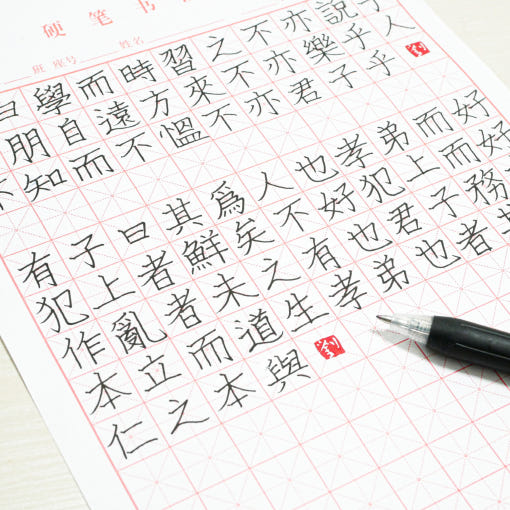 硬笔书
班 座号 姓名
曰學而時習之不亦說
朋自遠方來不亦樂乎人
不知而不慍不亦君子乎 劉
有子曰其爲人也孝弟而好
犯上者鮮矣不好犯上而好
作亂者未之有也君子務
本立而道生孝弟也者
仁之本與 劉